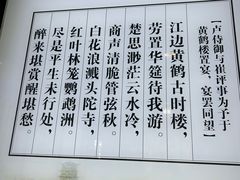 ［卢侍御与崔评事为予于
黄鹤楼置宴，宴罢同望］
江边黄鹤古时楼，
劳置华筵待我游。
楚思渺茫云水冷，
商声清脆管弦秋。
白花浪溅头陀寺，
红叶林笼鹦鹉洲。
尽是平生未行处，
醉来堪赏醒堪愁。